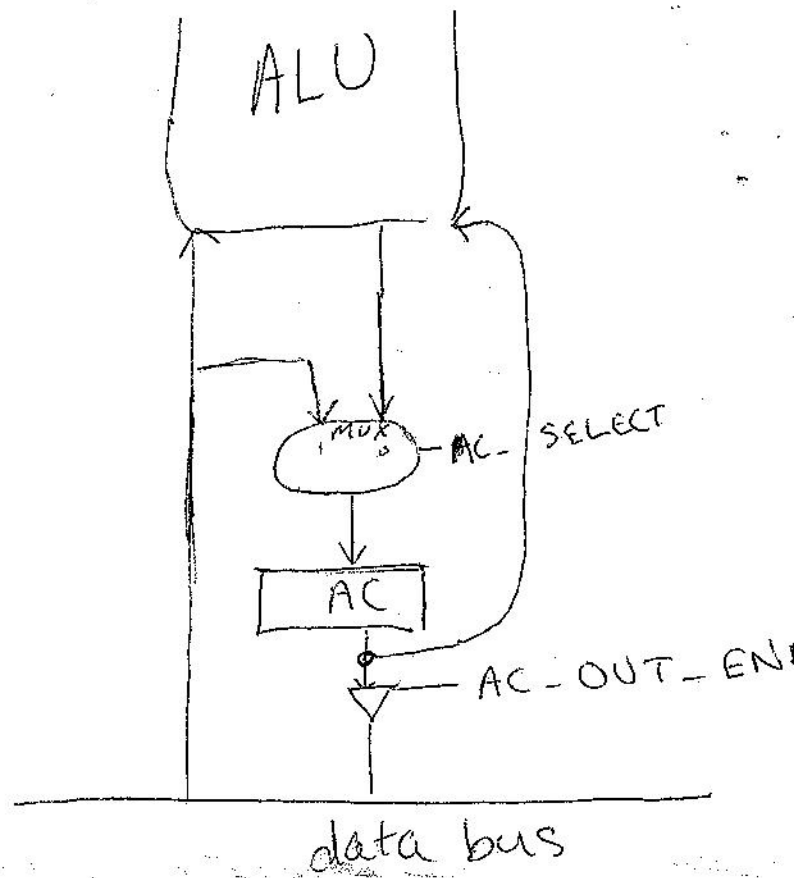 ALU
MUX
1 0
AC_SELECT
AC
AC_OUT_EN
data bus